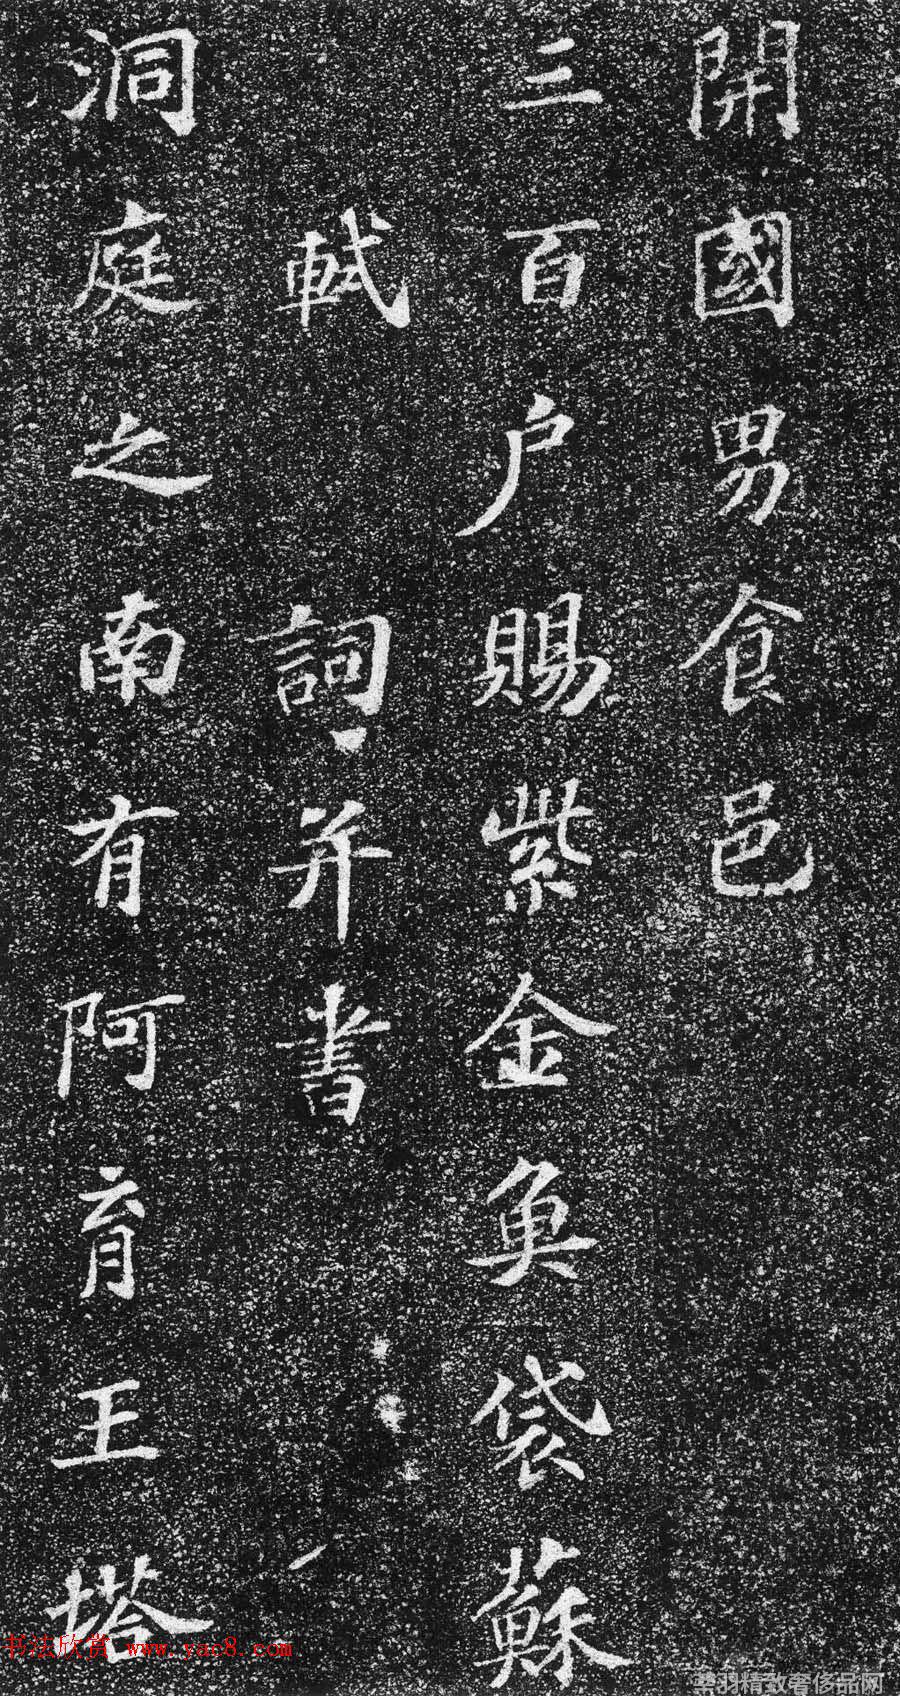 開國男食邑
三百户賜紫金魚袋蘇
軾 詞并書
洞庭之南有阿育王塔
书法欣赏 www.yac8.com
羽精致奢侈品网